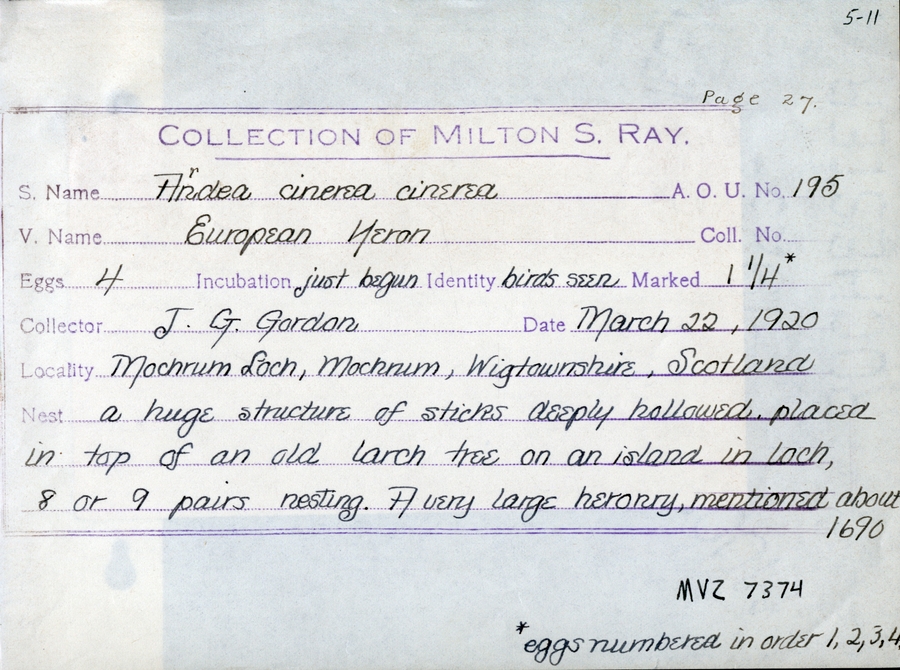 5-11
Page 27.
COLLECTION OF MILTON S. RAY.
S. Name Ardea cinerea cinerea A. O. U. No. 195
V. Name European Heron Coll. No.
Eggs 4 Incubation just begun Identity birds seen Marked 1 1/4*
Collector J. G. Gordon Date March 22, 1920
Locality Mochrum Loch, Mochrum, Wigtownshire, Scotland
Nest a huge structure of sticks deeply hollowed. placed
in top of an old larch tree on an island in loch,
8 or 9 pairs nesting. A very large heronry, mentioned about
1690
MVZ 7374
*eggs numbered in order 1, 2, 3, 4